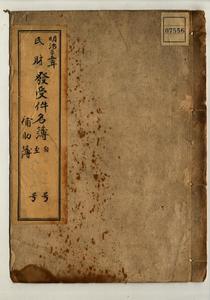 07556
明治三年
民財發受件名簿
自 号
至 号
備助簿